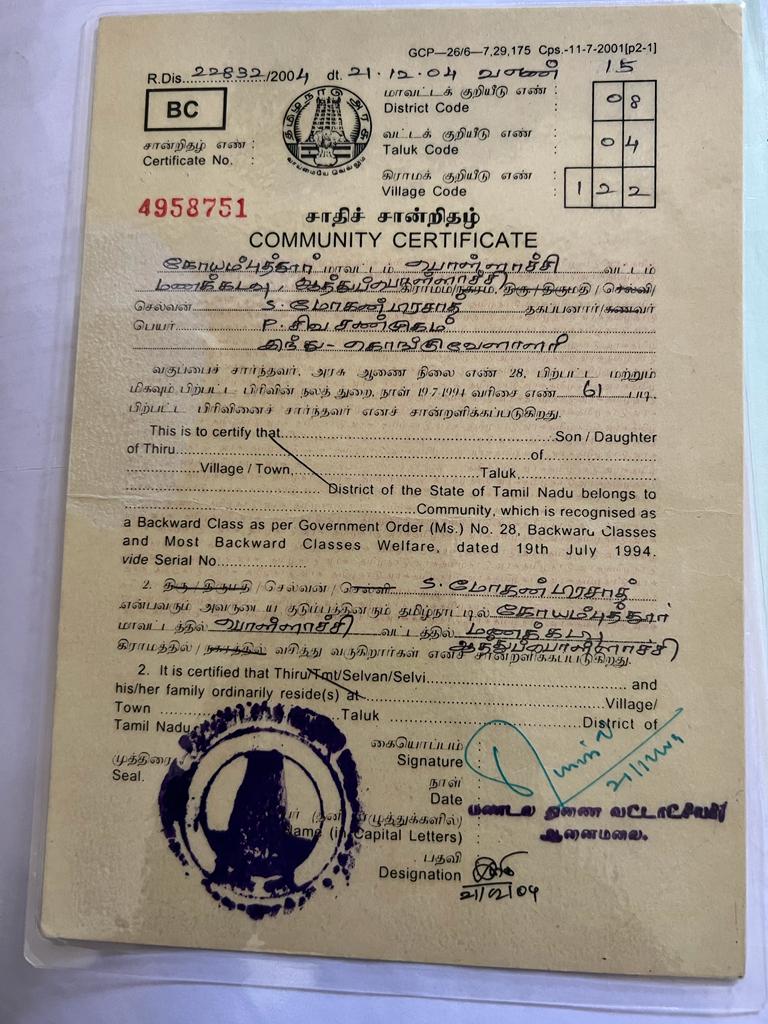 GCP—26/6—7,29,175 Cps.-11-7-2001[p2-1]
R.Dis. 22832/2004 dt. 21.12.04 15
BC
தமிழ்நாடு அரசு
வாய்மையே வெல்லும்
மாவட்டக் குறியீடு எண் :
District Code 08
சான்றிதழ் எண் :
Certificate No. :
வட்டக் குறியீடு எண் :
Taluk Code : 04
கிராமக் குறியீடு எண் :
Village Code : 122
4958751
சாதிச் சான்றிதழ்
COMMUNITY CERTIFICATE
கோயம்புத்தூர் மாவட்டம் பொள்ளாச்சி வட்டம்
மணக்கடவு, ஆத்துப்பொள்ளாச்சி கிராமம்/நகரம், திரு/திருமதி/செல்வி/
செல்வன் S. மோகன் பிரசாத் தகப்பனார்/கணவர்
பெயர் P. சிவ சண்முகம்
இந்து - கொங்கு வேளாளர்
வகுப்பைச் சார்ந்தவர், அரசு ஆணை நிலை எண் 28, பிற்பட்ட மற்றும்
மிகவும் பிற்பட்ட பிரிவின் நலத் துறை, நாள் 19-7-1994 வரிசை எண் 61 படி,
பிற்பட்ட பிரிவினைச் சார்ந்தவர் எனச் சான்றளிக்கப்படுகிறது.
This is to certify that..............Son / Daughter
of Thiru..............of..............
..............Village / Town,..............Taluk,..............
..............District of the State of Tamil Nadu belongs to
..............Community, which is recognised as
a Backward Class as per Government Order (Ms.) No. 28, Backward Classes
and Most Backward Classes Welfare, dated 19th July 1994.
vide Serial No..............
2. திரு / திருமதி / செல்வன் / செல்வி S. மோகன் பிரசாத்
என்பவரும் அவருடைய குடும்பத்தினரும் தமிழ்நாட்டில் கோயம்புத்தூர்
மாவட்டத்தில் பொள்ளாச்சி வட்டத்தில் மணக்கடவு
கிராமத்தில் / நகரத்தில் வசித்து வருகிறார்கள் எனச் சான்றளிக்கப்படுகிறது. ஆத்துப்பொள்ளாச்சி
2. It is certified that Thiru/Tmt/Selvan/Selvi.............. and
his/her family ordinarily reside(s) at..............Village/
Town ..............Taluk ..............District of
Tamil Nadu
முத்திரை
Seal.
கையொப்பம் :
Signature :
நாள் :
Date
மண்டல துணை வட்டாட்சியர்
ஆனைமலை.
(தனி எழுத்துக்களில்)
Name (in Capital Letters) :
பதவி
Designation
21/12/04